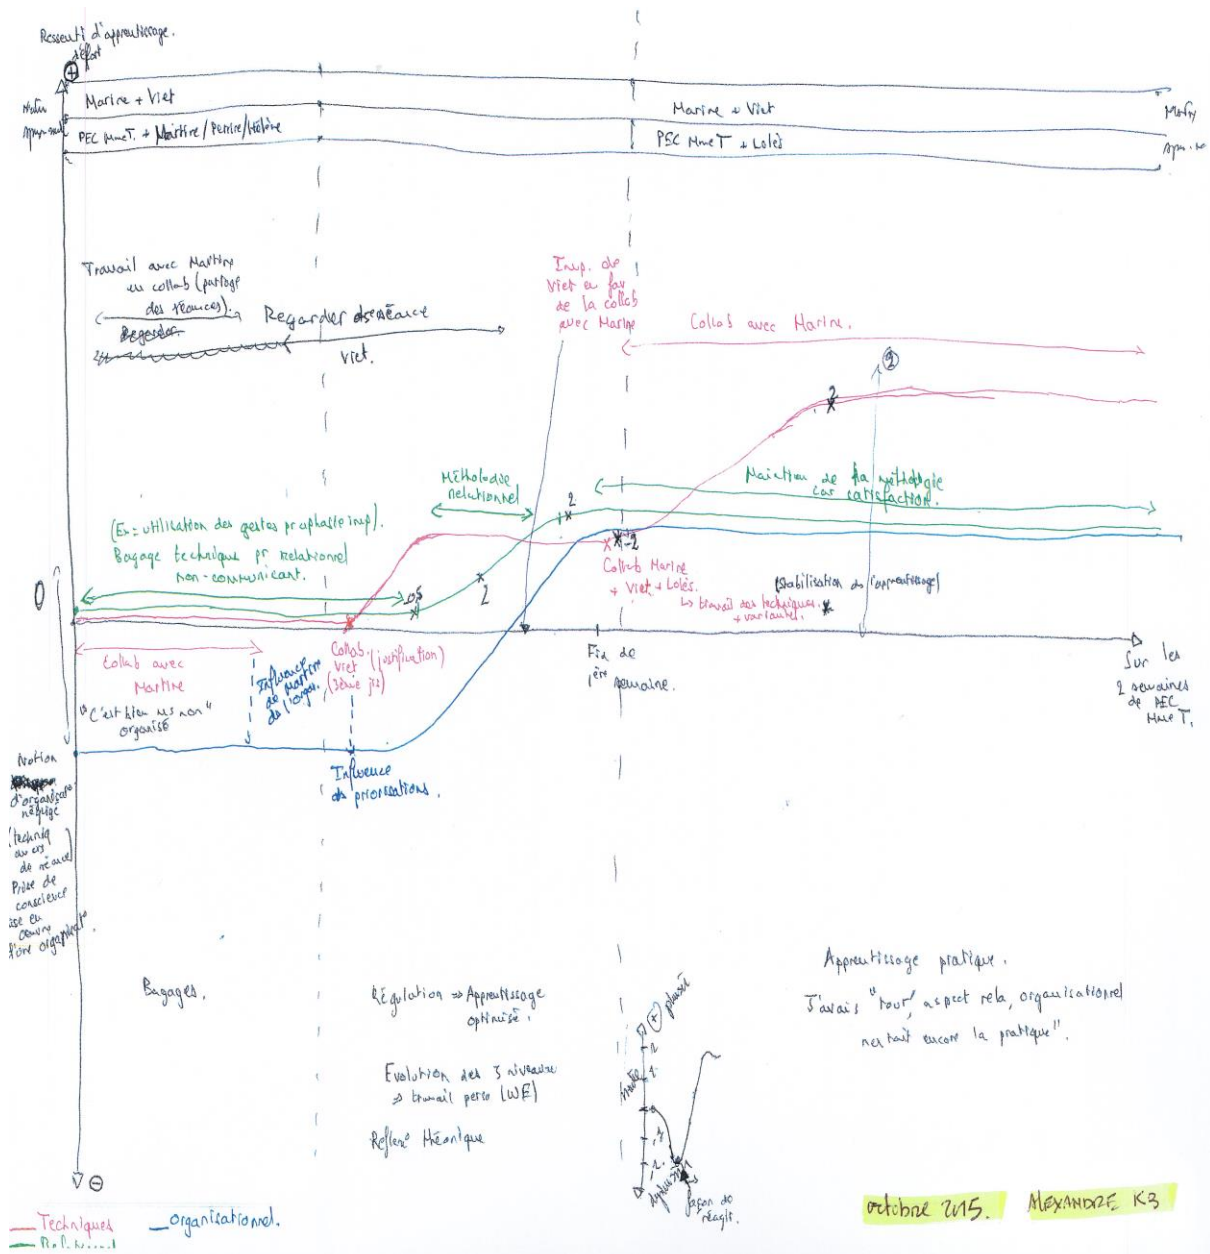 Ressenti d'apprentissage.
d'effort
+
Marine + Viet
Marine + Viet
PEC Mme T. + Martine/Perrine/Hélène
PEC Mme T + Loïs
Travail avec Martine
en collab (partage
des séances).
Regarder
Regarder des séance
Viet.
Imp. de
Viet en fav
de la collab
avec Marine
Collab avec Marine.
2
2
Méthodie
relationnel
2
Maintien de la méthologie
car satisfaction.
(Ex = utilisation des gestes pr aphasie imp).
Bagage technique pr relationnel
non-communicant.
0
0,5
2
-2
Collab Marine
+ Viet + Loïs.
↳ travail des techniques.
+ variantes.
(Stabilisation de l'apprentissage)
Collab avec
Martine
"C'est bien ms non"
organisé
Influence
de Martine
de l'organ.
Collab.
Viet (justification)
(Série jts)
Fin de
1ère semaine.
Sur les
2 semaines
de PEC
Mme T.
Influence
des proposations.
Notion
d'organisat°
négligé
(techniq
au crs
de séance)
Prise de
conscience
ise en
oeuvre
d'une organisat°
Bagages.
Régulation ⇒ Apprentissage
optimisé.
Evolution des 3 niveaux
⇒ travail perso (WE)
Reflex° théorique
+ plaisir
2
1
0
-1
-2
façon de
réagir.
Apprentissage pratique.
J'avais "tout", aspect rela, organisationnel
restait encore la pratique".
−
Techniques
organisationnel.
octobre 2015.
ALEXANDRE K3